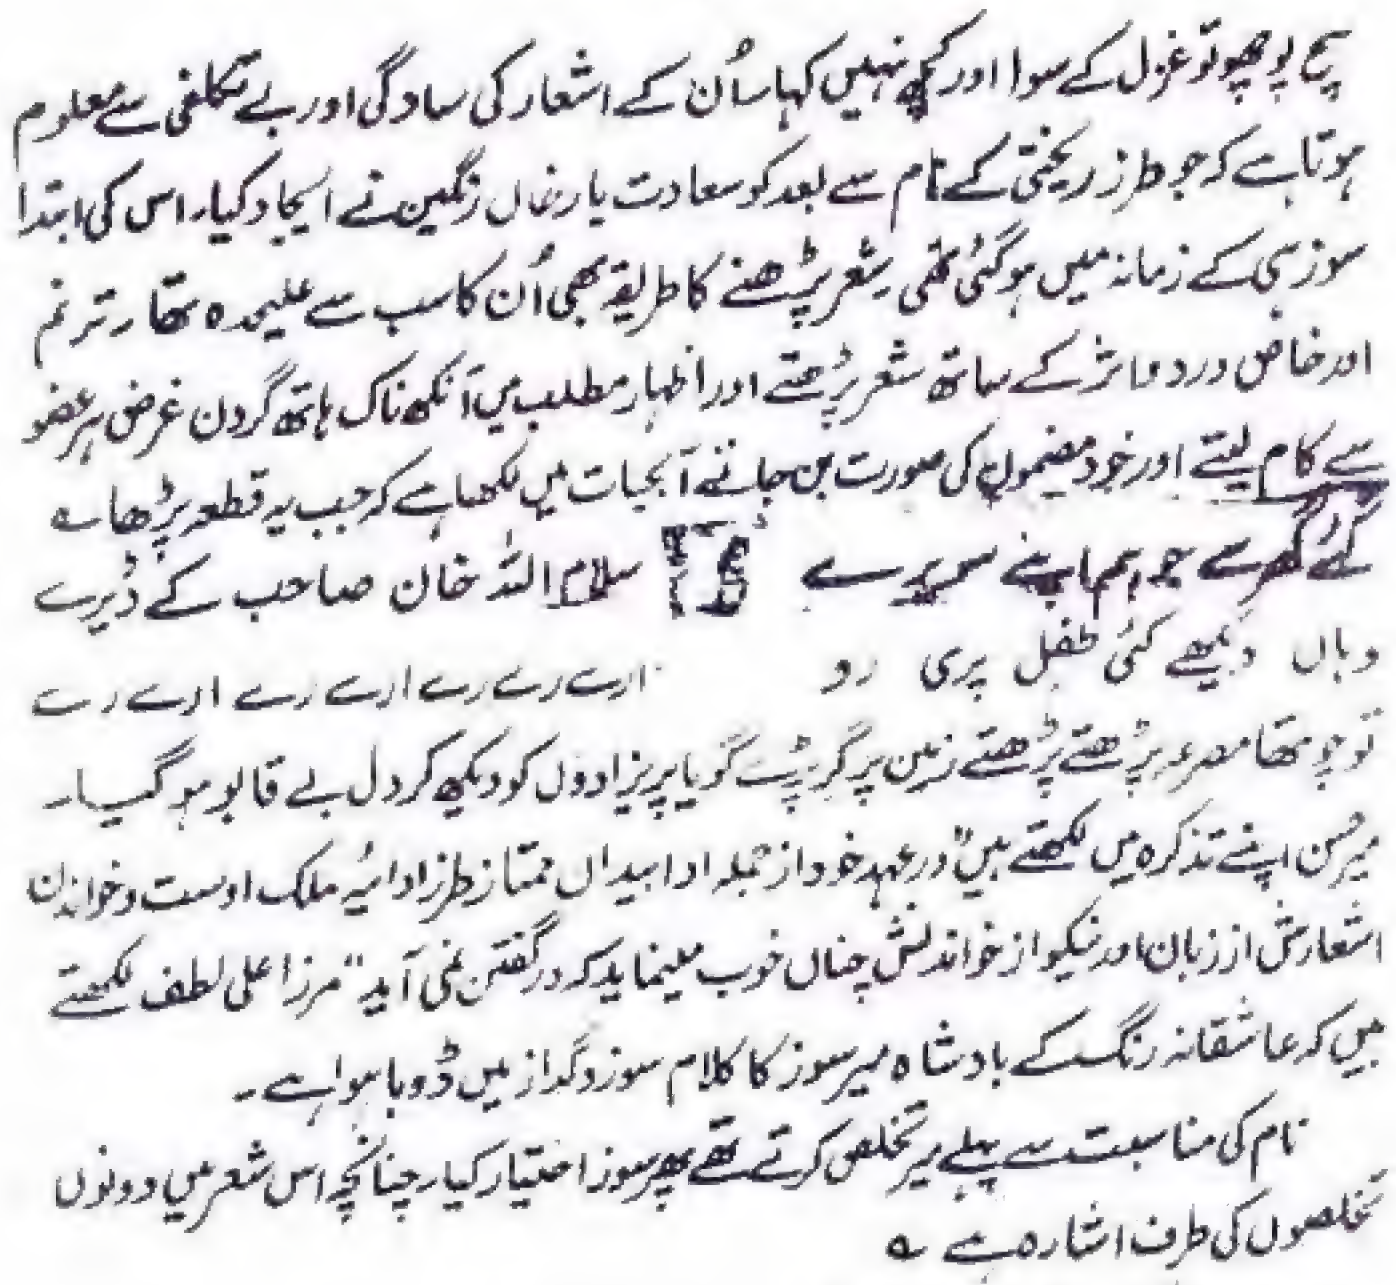 سچ پوچھو تو غزل کے سوا اور کچھ نہیں کہا۔ اُن کے اشعار کی سادگی اور بے تکلفی سے معلوم
ہوتا ہے کہ جو طرز ریختی کے نام سے بعد کو سعادت یار خاں رنگین نے ایجاد کیا۔ اس کی ابتدا
سوز ہی کے زمانہ میں ہوگئی تھی۔ شعر پڑھنے کا طریقہ بھی اُن کا سب سے علیحدہ تھا۔ ترنم
اور خاص درد و اثر کے ساتھ شعر پڑھتے اور اظہار مطلب میں آنکھ ناک ہاتھ گردن غرض ہر عضو
سے کام لیتے اور خود مضمون کی صورت بن جاتے آبحیات میں لکھا ہے کہ جب یہ قطعہ پڑھا ؎
گئے گھر سے جو ہم اپنے سویرے سلام اللہ خان صاحب کے ڈیرے
وہاں دیکھے کئی طفل پری رو ارے رے رے ارے رے ارے رے
تو چوتھا مصرعہ پڑھتے پڑھتے زمین پر گر پڑے گویا پریزادوں کو دیکھ کر دل بے قابو ہو گیا۔
میر حسن اپنے تذکرہ میں لکھتے ہیں "در عہد خود از جملہ ادا بیداں ممتاز طرز ادائیہ ملک اوست و خواندن
اشعارش از زبان اور نیکو از خواندنش چناں خوب مینماید کہ در گفتن نمی آید" مرزا علی لطف لکھتے
ہیں کہ عاشقانہ رنگ کے بادشاہ میر سوز کا کلام سوز و گداز میں ڈوبا ہوا ہے۔
نام کی مناسبت سے پہلے میر تخلص کرتے تھے پھر سوز اختیار کیا۔ چنانچہ اس شعر میں دونوں
تخلصوں کی طرف اشارہ ہے ؎